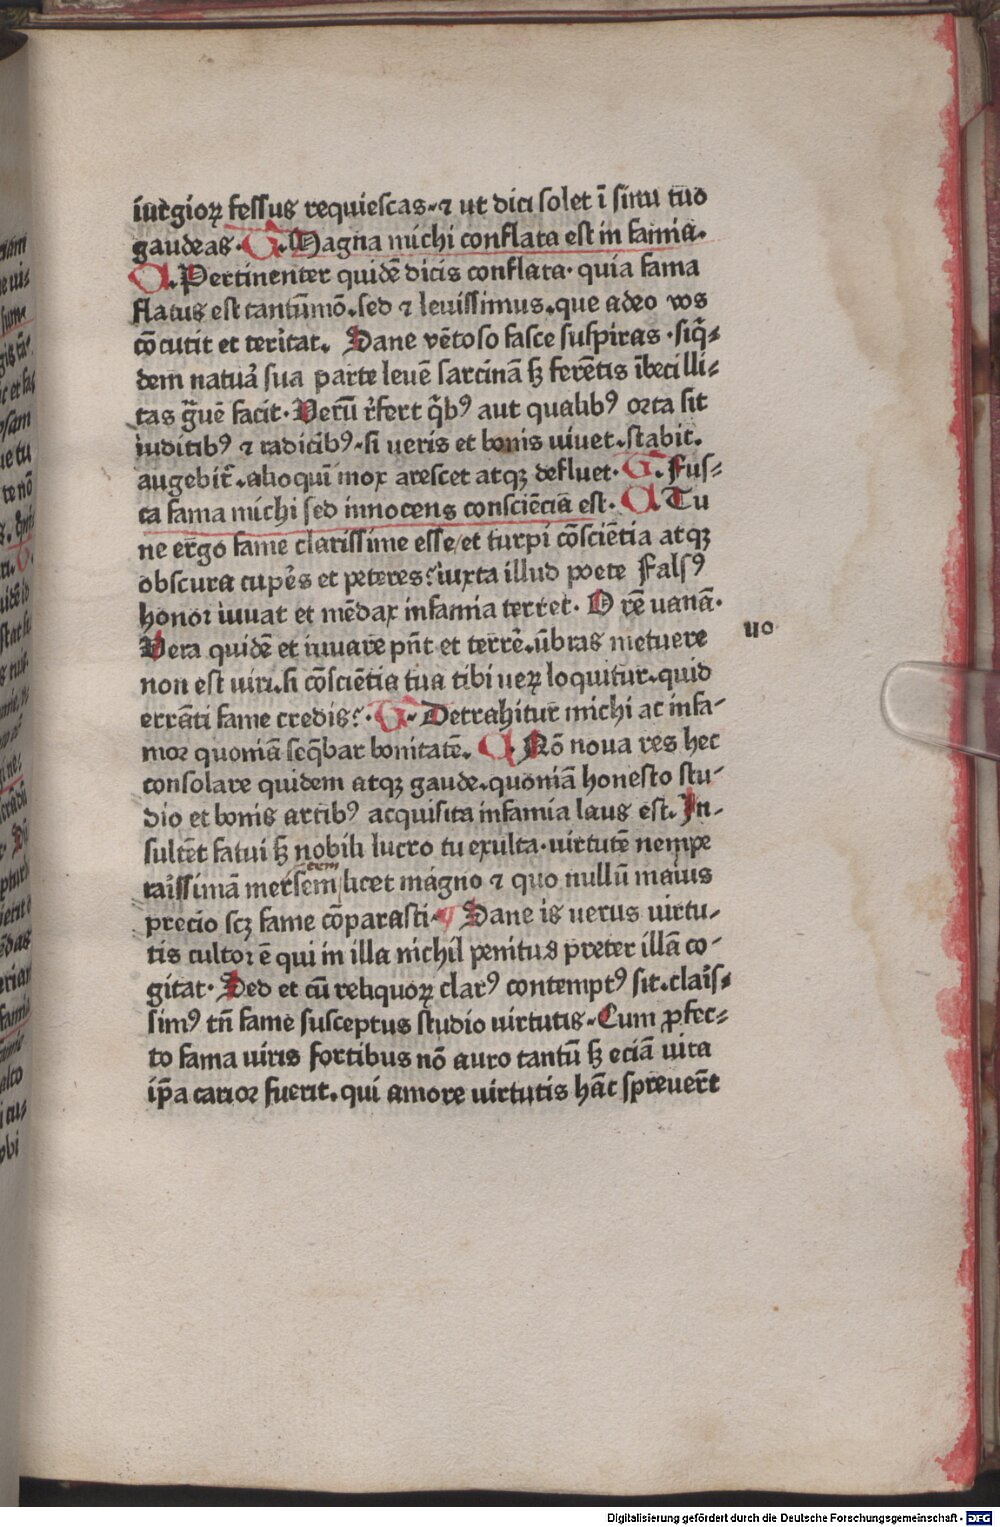 iurẽgioꝝ fessus requiescas·⁊ ut dici solet ĩ sinu tuo
gaudeas· G. Magna michi conflata est in famia.
A. Pertinenter quidẽ dicis conflata· quia fama
flatus est tantũmõ. sed ⁊ levissimus. que adeo vos
cõcutit et teritat. Sane vẽtoso fasce suspiras · siq̃-
dem natuã sua parte levẽ sarcinã sꝫ ferẽtis ĩbecilli-
tas gͣuẽ facit. Verũ rẽfert q̃bꝰ aut qualibꝰ orta sit
iuditibꝰ ⁊ radicibꝰ. si veris et bonis vivet. stabit.
augebit̃. alioquĩ mox arescet atqꝫ defluet. G. Fus-
ca fama michi sed innocens consciẽcia est. A Tu
ne ergo fame clarissime esse et turpi cõsciẽtia atqꝫ
obscura cupẽs et peteres? iuxta illud poete Falsꝰ
honor iuvat et mẽdax infamia terret. O rẽ vanã.
Vera quidẽ et iuvare pñt et terrẽ. ũbras metuere
non est viri. si cõsciẽtia tua tibi veꝝ loquitur. quid
errãti fame credis? G. Detrahitur michi ac infa-
mor quoniã seq̃bar bonitatẽ. A. Nõ nova res hec
consolare quidem atqꝫ gaude. quoniã honesto stu-
dio et bonis artibꝰ acquisita infamia laus est. In-
sultẽt fatui sꝫ nobili lucro tu exulta. virtutẽ nempe
raissimã mersem licet magno ⁊ quo nullũ maius
precio scꝫ fame cõparasti. ¶ Sane is verus virtu-
tis cultor ẽ qui in illa nichil penitus preter illã co-
gitat. Sed et cũ reliquoꝝ clarꝰ contemptꝰ sit. clais-
simꝰ tñ fame susceptus studio virtutis. Cum ꝓfec-
to fama viris fortibus nõ auro tantũ sꝫ eciã vita
ip̃a carior fuerit. qui amore virtutis hãc spreverũt